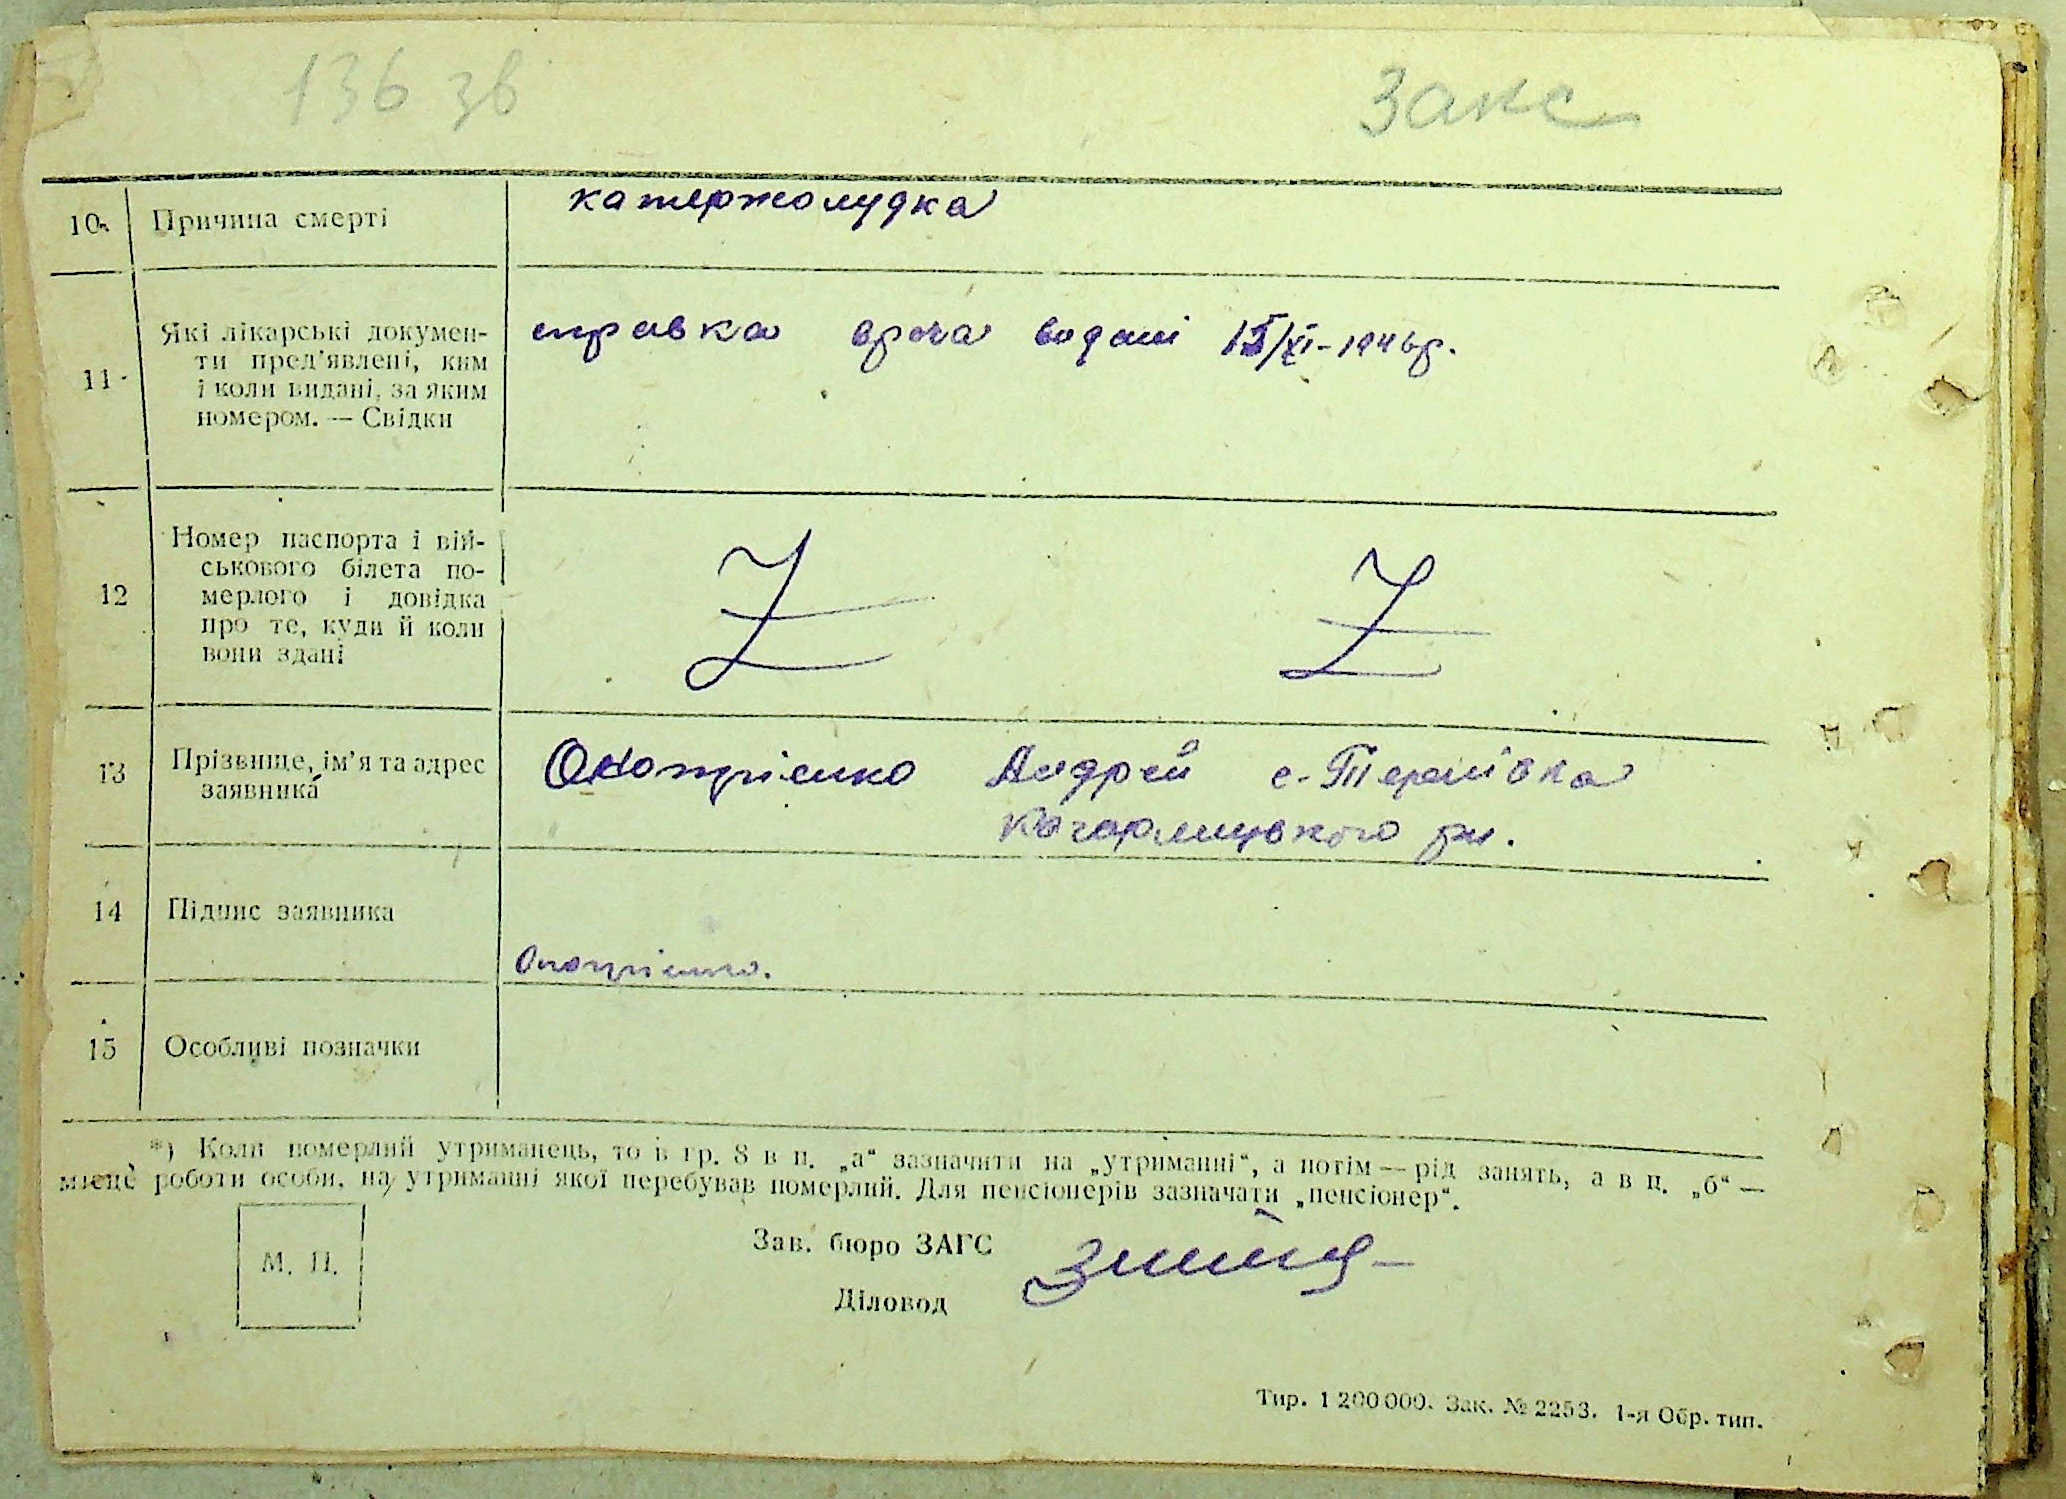 136 зв
Закс
10. Причина смерті
катержолудка
11. Які лікарські докумен-
ти пред'явлені, ким
і коли видані, за яким
номером. — Свідки
справка врача видані 15/XI-1946р.
12 Номер паспорта і вій-
ськового білета по-
мерлого і довідка
про те, куди й коли
вони здані
Z Z
13 Прізвище, ім'я та адрес
заявника
Онопрієнко Андрей с. Теремівка
Кагарлицького рн.
14 Підпис заявника
Онопрієнко.
15 Особливі позначки
*) Коли померлий утриманець, то в гр. 8 в п. „а“ зазначити на „утриманні“, а потім — рід занять, а в п. „б“ —
місце роботи особи, на утриманні якої перебував померлий. Для пенсіонерів зазначати „пенсіонер“.
М. П.
Зав. бюро ЗАГС
Діловод
Тир. 1 200 000. Зак. № 2253. 1-я Обр. тип.